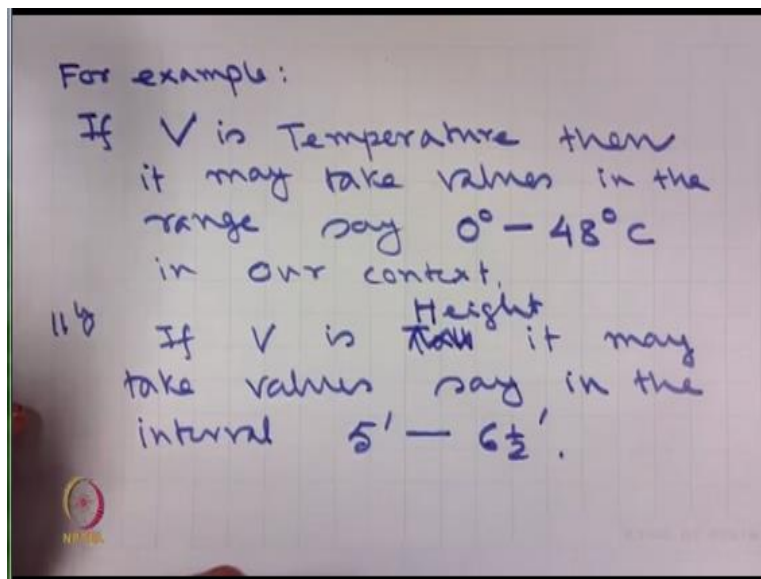 For example:
If V is Temperature then
it may take values in the
range say 0° — 48° C
in our context.
Height
11ly If V is it may
take values say in the
interval 5' — 6 1/2'.
NPTEL